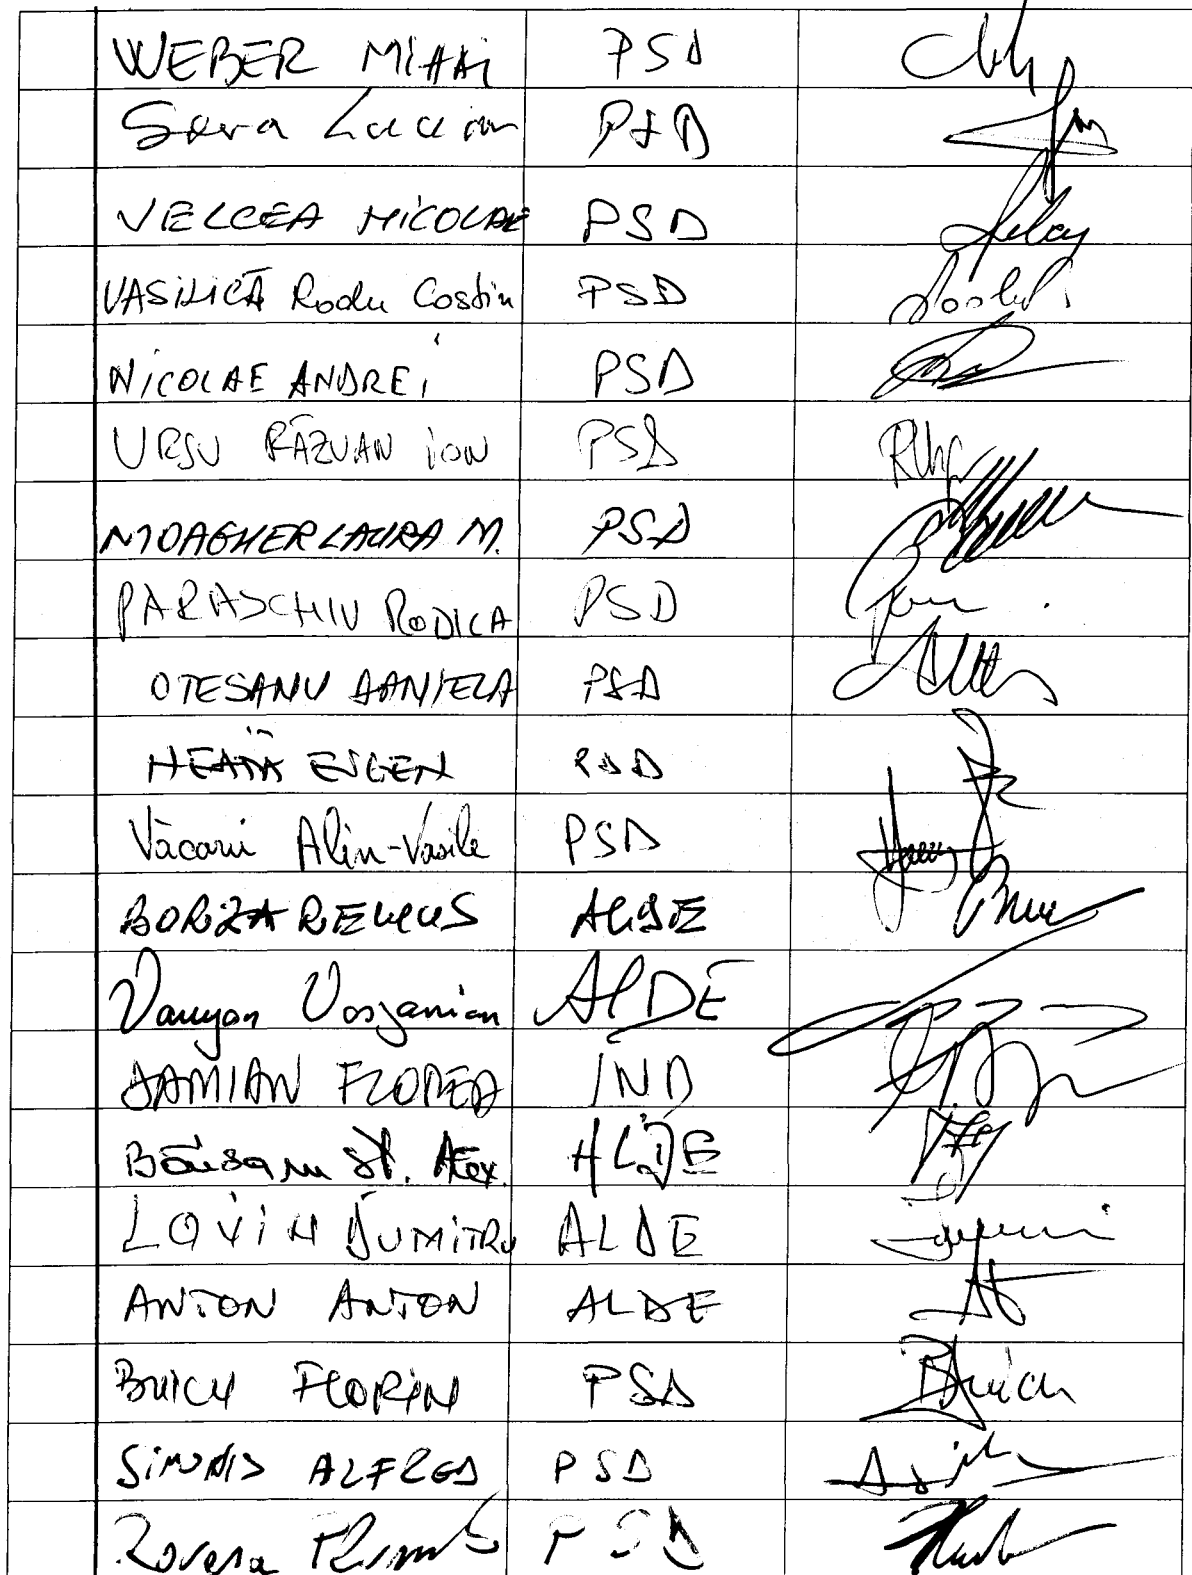 WEBER MIHAI PSD
Sova Lucian PSD
VELCEA NICOLAE PSD
VASILICĂ Radu Costin PSD
NICOLAE ANDREI PSD
URSU RĂZVAN ION PSD
MOAGHER LAURA M. PSD
PARASCHIV RODICA PSD
OTESANU DANIELA PSD
NEAȚĂ EUGEN PSD
Văcaru Alin-Vasile PSD
BORZA REMUS ALDE
Varujan Vosganian ALDE
DAMIAN FLOREA IND
Băișanu Șt. Alex. ALDE
LOVIN DUMITRU ALDE
ANTON ANTON ALDE
BUICU FLORIN PSD
SIMONIS ALFRED PSD
PSD